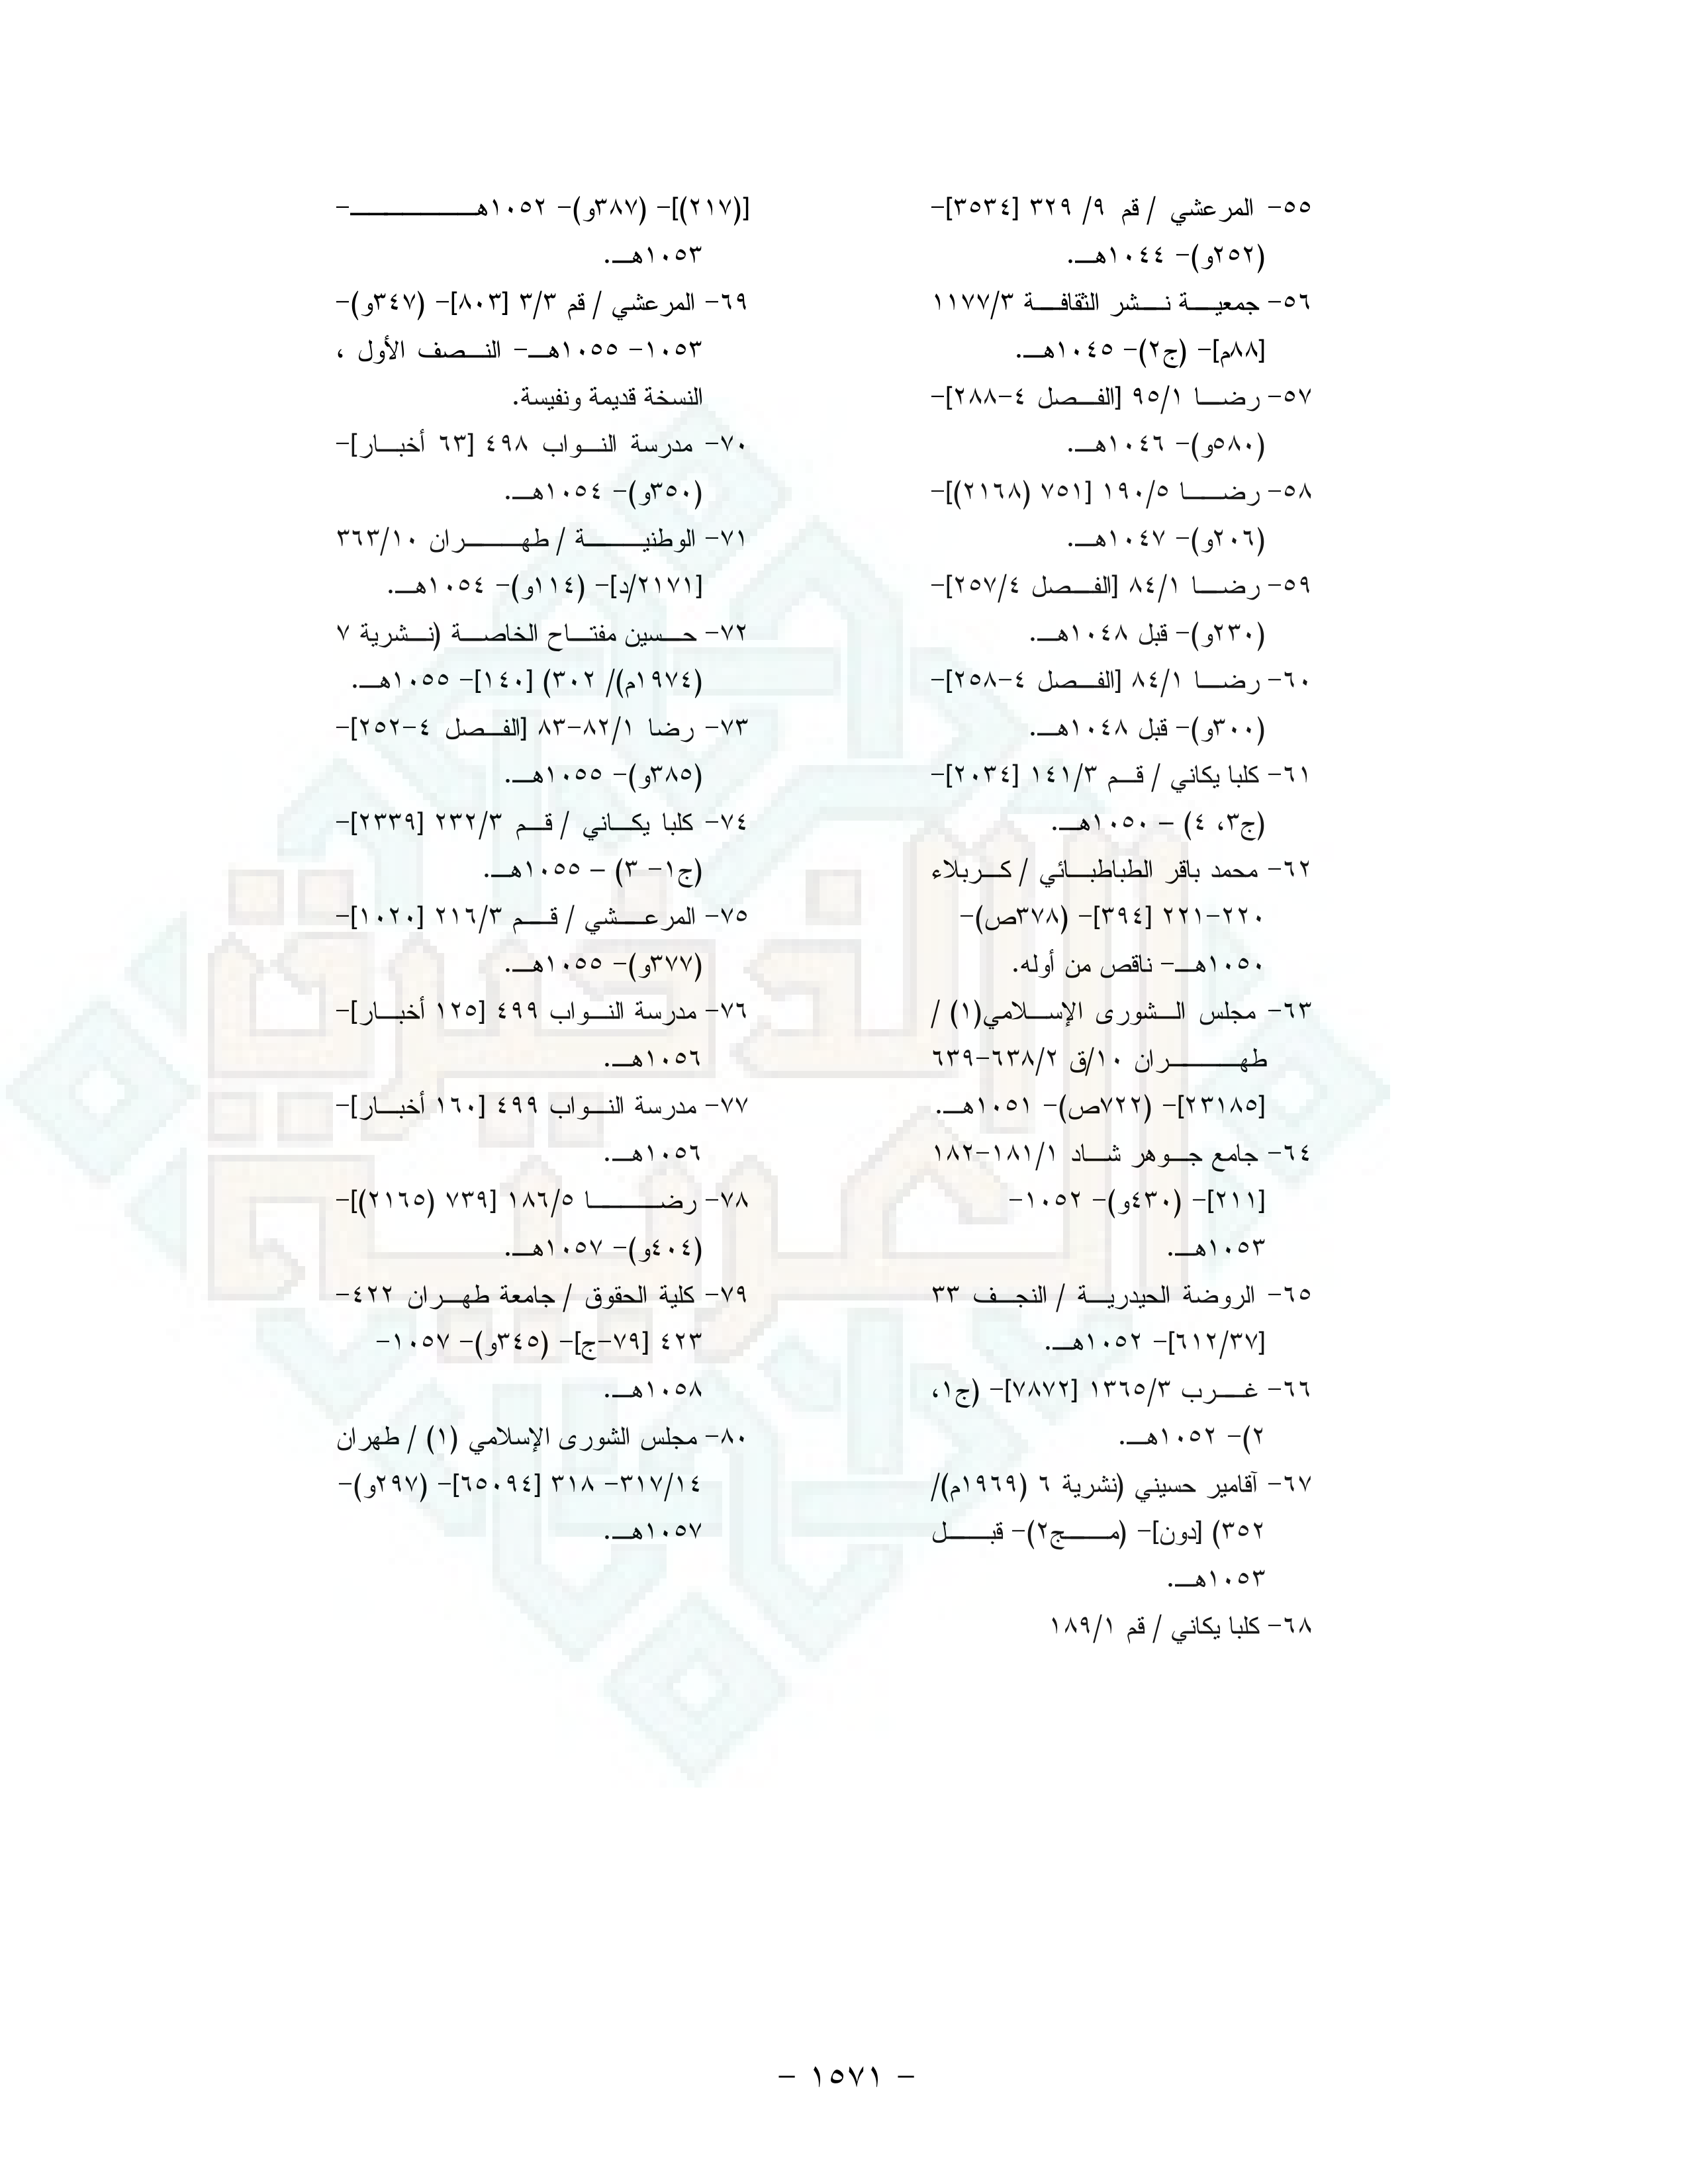 ٥٥- المرعشي / قم ٩/ ٣٢٩ [٣٥٣٤]-
(٢٥٢و)- ١٠٤٤هـ.
٥٦- جمعيـة نـشر الثقافـة ١١٧٧/٣
[٨٨م]- (ج٢)- ١٠٤٥هـ.
٥٧- رضـا ٩٥/١ [الفـصل ٤-٢٨٨]-
(٥٨٠و)- ١٠٤٦هـ.
٥٨- رضـا ١٩٠/٥ [٧٥١ (٢١٦٨)]-
(٢٠٦و)- ١٠٤٧هـ.
٥٩- رضـا ٨٤/١ [الفـصل ٢٥٧/٤]-
(٢٣٠و)- قبل ١٠٤٨هـ.
٦٠- رضـا ٨٤/١ [الفـصل ٤-٢٥٨]-
(٣٠٠و)- قبل ١٠٤٨هـ.
٦١- كلبا يكاني / قـم ١٤١/٣ [٢٠٣٤]-
(ج٣، ٤) – ١٠٥٠هـ.
٦٢- محمد باقر الطباطبـائي / كـربلاء
٢٢٠-٢٢١ [٣٩٤]- (٣٧٨ص)-
١٠٥٠هـ- ناقص من أوله.
٦٣- مجلس الـشورى الإسـلامي(١) /
طهـران ١٠/ق ٦٣٨/٢-٦٣٩
[٢٣١٨٥]- (٧٢٢ص)- ١٠٥١هـ.
٦٤- جامع جـوهر شـاد ١٨١/١-١٨٢
[٢١١]- (٤٣٠و)- ١٠٥٢-
١٠٥٣هـ.
٦٥- الروضة الحيدريـة / النجـف ٣٣
[٦١٢/٣٧]- ١٠٥٢هـ.
٦٦- غـرب ١٣٦٥/٣ [٧٨٧٢]- (ج١،
٢)- ١٠٥٢هـ.
٦٧- آقامير حسيني (نشرية ٦ (١٩٦٩م)/
٣٥٢) [دون]- (مـج٢)- قبـل
١٠٥٣هـ.
٦٨- كلبا يكاني / قم ١٨٩/١
[(٢١٧)]- (٣٨٧و)- ١٠٥٢هـ-
١٠٥٣هـ.
٦٩- المرعشي / قم ٣/٣ [٨٠٣]- (٣٤٧و)-
١٠٥٣- ١٠٥٥هـ- النـصف الأول ،
النسخة قديمة ونفيسة.
٧٠- مدرسة النـواب ٤٩٨ [٦٣ أخبـار]-
(٣٥٠و)- ١٠٥٤هـ.
٧١- الوطنيـة / طهـران ٣٦٣/١٠
[٢١٧١/د]- (١١٤و)- ١٠٥٤هـ.
٧٢- حـسين مفتـاح الخاصـة (نـشرية ٧
(١٩٧٤م)/ ٣٠٢) [١٤٠]- ١٠٥٥هـ.
٧٣- رضا ٨٢/١-٨٣ [الفـصل ٤-٢٥٢]-
(٣٨٥و)- ١٠٥٥هـ.
٧٤- كلبا يكـاني / قـم ٢٣٢/٣ [٢٣٣٩]-
(ج١- ٣) – ١٠٥٥هـ.
٧٥- المرعـشي / قـم ٢١٦/٣ [١٠٢٠]-
(٣٧٧و)- ١٠٥٥هـ.
٧٦- مدرسة النـواب ٤٩٩ [١٢٥ أخبـار]-
١٠٥٦هـ.
٧٧- مدرسة النـواب ٤٩٩ [١٦٠ أخبـار]-
١٠٥٦هـ.
٧٨- رضـا ١٨٦/٥ [٧٣٩ (٢١٦٥)]-
(٤٠٤و)- ١٠٥٧هـ.
٧٩- كلية الحقوق / جامعة طهـران ٤٢٢-
٤٢٣ [٧٩-ج]- (٣٤٥و)- ١٠٥٧-
١٠٥٨هـ.
٨٠- مجلس الشورى الإسلامي (١) / طهران
٣١٧/١٤- ٣١٨ [٦٥٠٩٤]- (٢٩٧و)-
١٠٥٧هـ.
- ١٥٧١ -